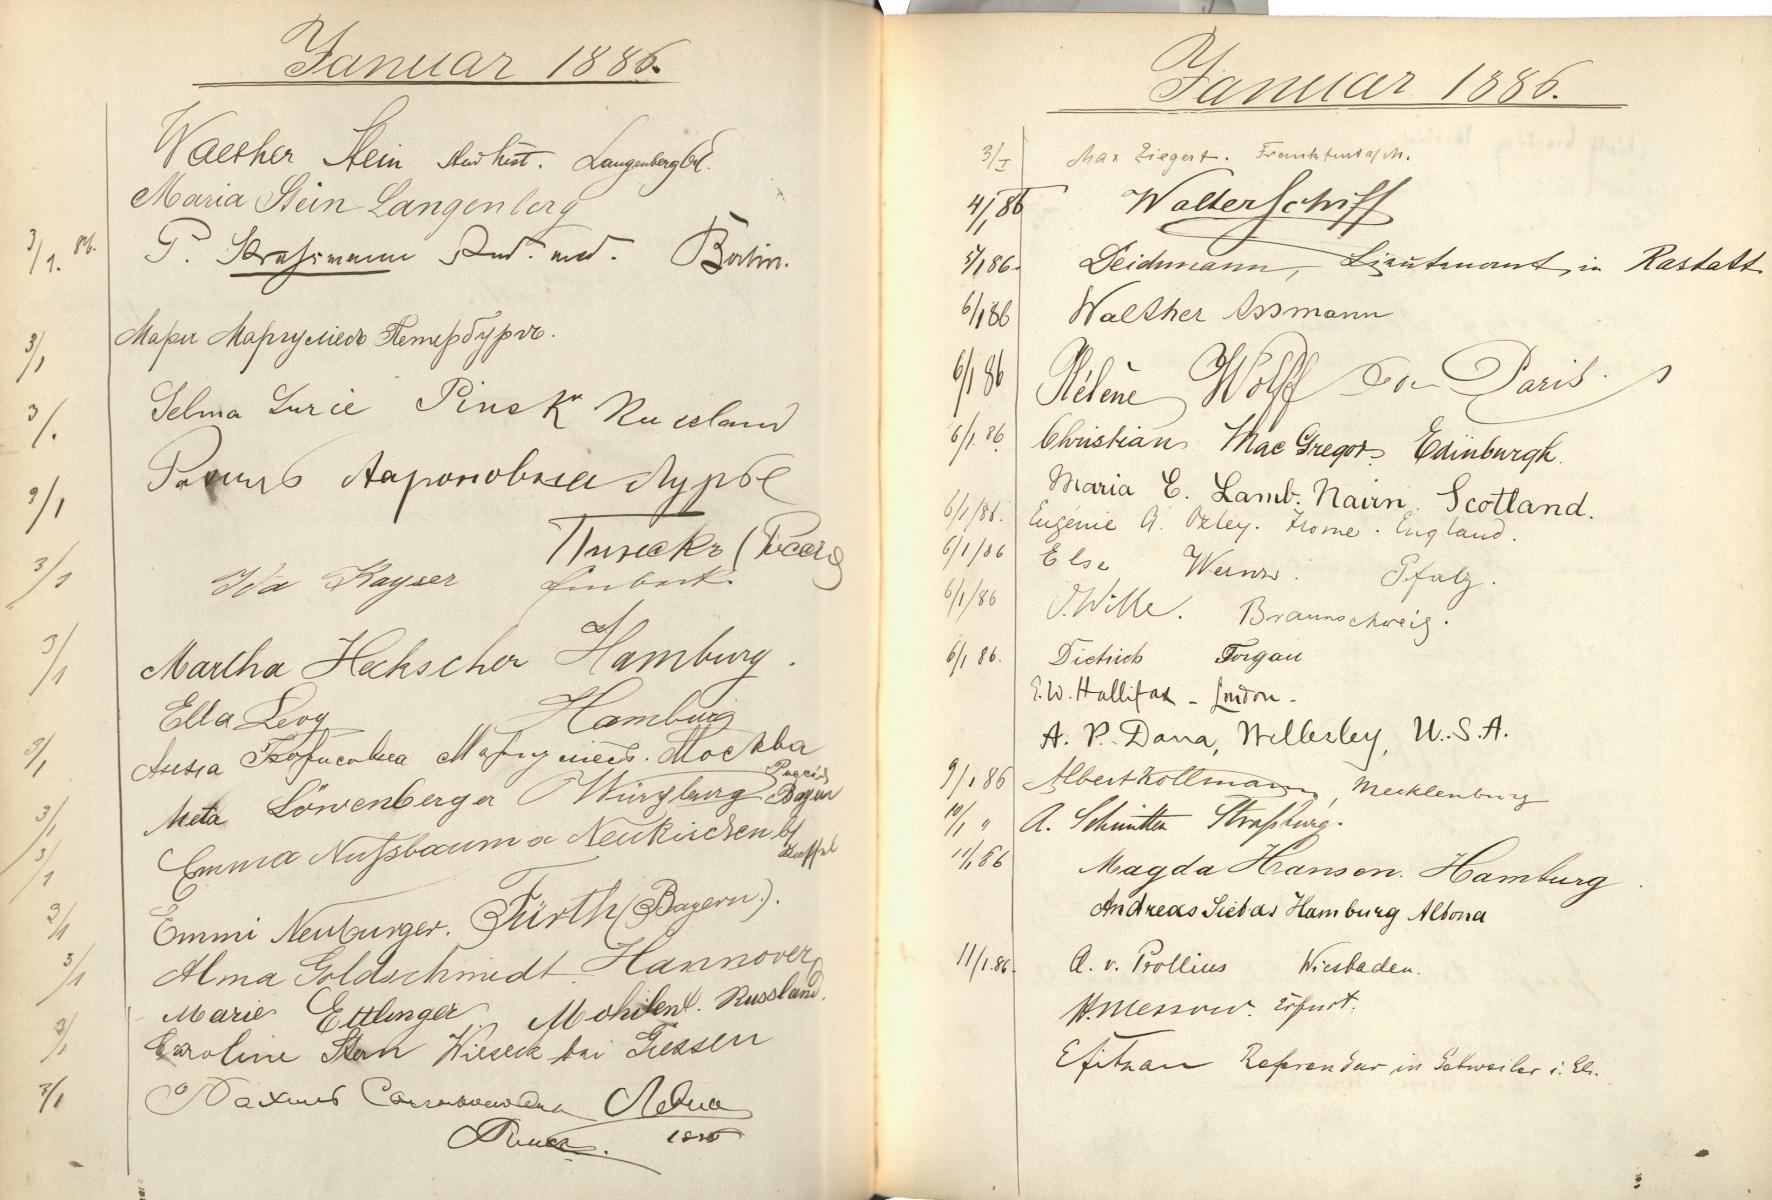 Januar 1886.
Walther Stein stud hist. Langenberg
Maria Stein Langenberg
3/1. 86. P. Strassmann stud. med. Berlin.
3/1 Мари Маргулiесъ Петербургъ.
3/. Selma Lurie Pinsk Russland
3/1 Аароновна Лурье
Пинскъ (Россiя
3/1 Ida Kayser Einbeck.
3/1 Martha Heckscher Hamburg.
Ella Levy Hamburg
3/1 Анна Борисовна Маргулiесъ. Москва
Россiя
3/1 Meta Löwenberger Würzburg Bayern
3/1 Emma Nußbaum a Neukirchen b/
Kassel
3/1 Emmi Neuburger. Fürth (Bayern.).
3/1 Alma Goldschmidt. Hannover,
Marie Ettlinger Mohilew. Russland.
3/1 Caroline Stern Wieseck bei Giessen
3/1 Рахиль
Januar 1886.
3/I Max Ziegert. Frankfurt a/M.
4/1 86 Walter Schiff
5/1 86. Deichmann, Lieutenant, in Rastatt.
6/1 86 Walther Assmann
6/1 86 Hélène Wolff von Paris.
6/1. 86. Christian MacGregor Edinburgh.
Maria E. Lamb. Nairn. Scotland.
6/1/86. Eugénie A. Oxley. Frome. England.
6/1/86 Else Werner. Pfalz.
6/1/86 O. Wilke. Braunschweig.
6/1 86. Dietrich Torgau
E. W. Hallifax - London -
A. P. Dana, Wellesley, U.S.A.
9/1 86 Albert Kollmann, Mecklenburg
10/1 " A. Schmitter Straßburg.
11/1 86 Magda Hansen. Hamburg.
Andreas Sietas Hamburg Altona
11/1.86. A. v. Prollius Wiesbaden.
H. Messow. Erfurt.
Referendar in Gebweiler i. Els.